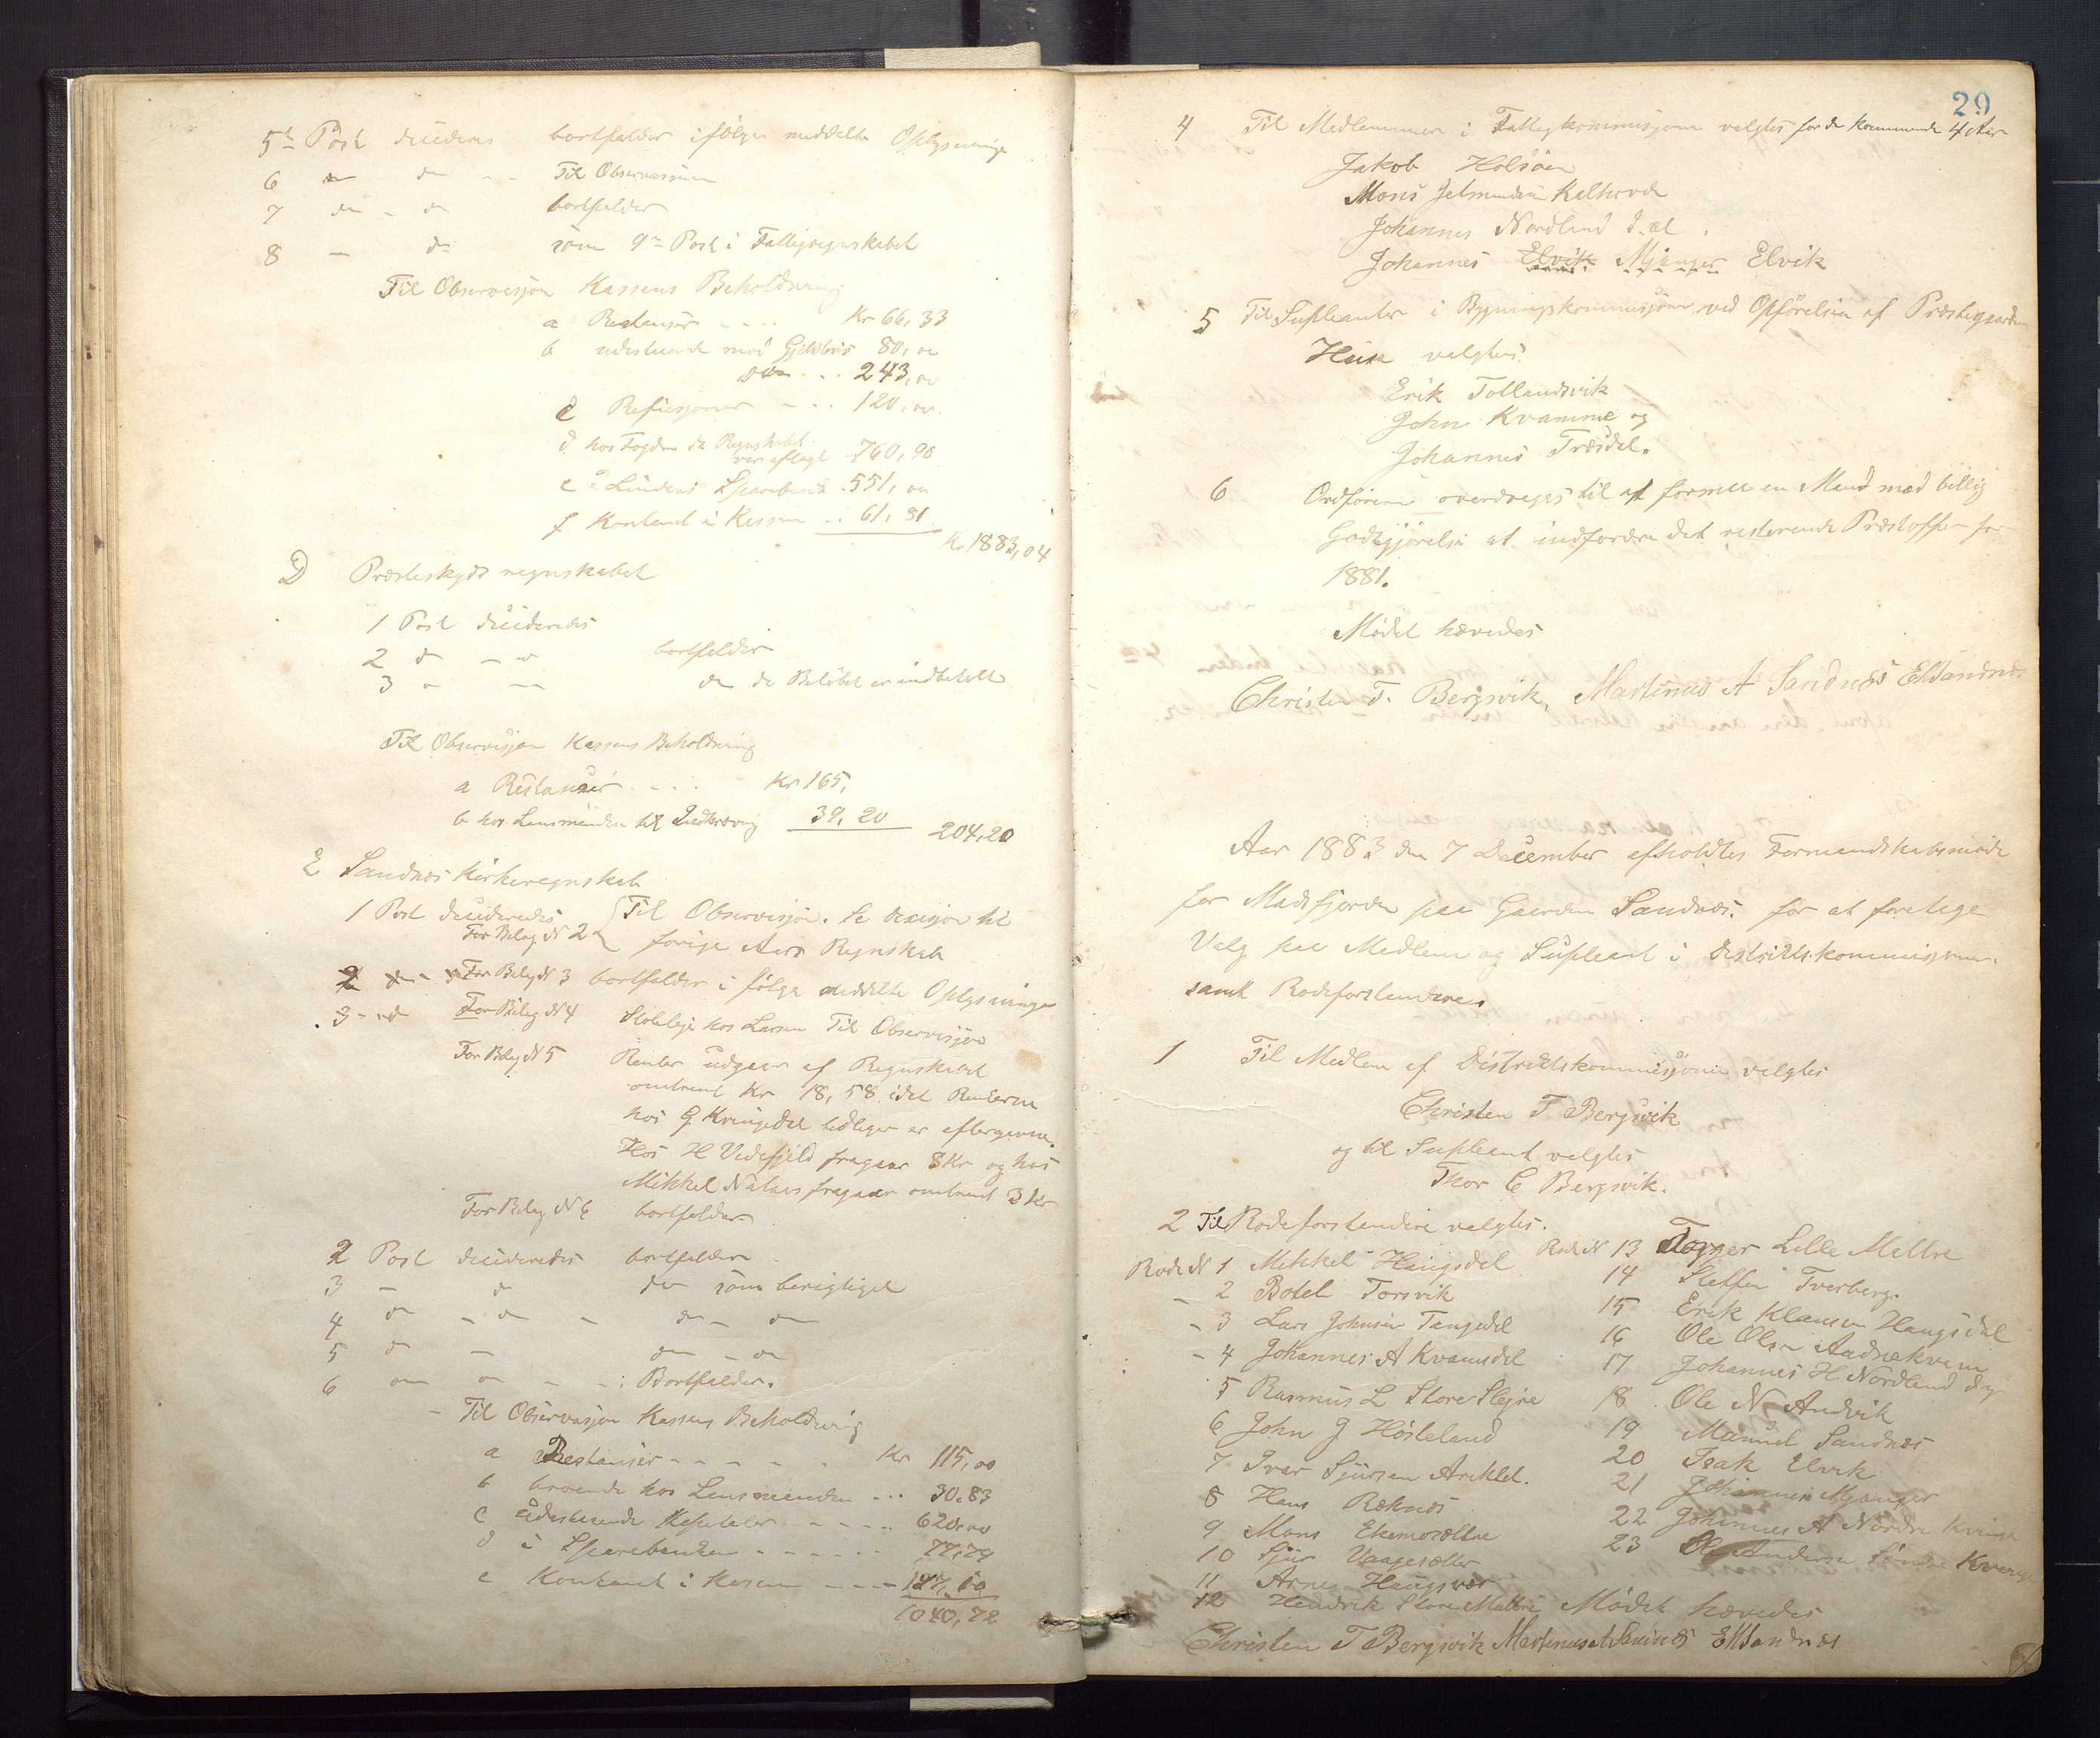 5te Post decideres bortfalder ifølge meddelte Oplysninge
6 do do - - Til Observassion
7 do - do bortfalder
8 — do som 9de Post i Fattigregnskabet
Til Observasjon Kassens Beholdning
a Restanser - - - - Kr 66,33
b udestaaende mod Gjeldbrev 80,00
do - - 243,00
c Refusjoner - - - 120,00
d hos Fogden da Regnskabet
var aflagt 760,90
e i Lindaas Sparebank 551,00
f Kontant i Kassen - - 61,81
Kr 1883,04
D Presteskyds regnskabet
1 Post decideredes
2 do - do bortfalder
3 - — do da Beløbet er indbetalt
Til Observasjon Kassens Beholdning
a Restanser - - - Kr 165,
b hos Lensmanden til Inddrivning 39,20 204,20
E Sandnes Kirkeregnskab
1 Post decideredes
For Bilag N 2 Til Observisjon. Se decisjon til
forige Aars Regnskab
For Bilag N 3 bortfalder i følge meddelte Oplysninge
For Bilag N 4 Stoleleje hos Larsen Til Observisjon
For Bilag N 5 Renter udgaar af Regnskabet
omtrent Kr 18,58 idet Renterne
hos G Kringedal tidliger er eftergivne.
Hos H Videsjeld fragaar 8 Kr og hos
Mikkel Nataas fragaar omtrent 3 Kr
For Bilag N 6 bortfalder
2 Post decideredes bortfalder
3 - do do som berigtiget
4 do - do - do - do
5 do — do - do
6 do do - - : Bortfalder.
- Til Observasjon Kassens Beholdning
a Restanser - - - - - - Kr 115,00
b beroende hos Lensmanden - - - 30.83
c Udestaaende Kapitaler - - - - 620,00
d i Sparebanken - - - - - - 77,79
e Kontant i Kassen - - - - 197,10
1040,72
29
4 Til Medlemmer i Fattigkommisjonen valgtes for de kommende 4 Aar
Jakob Holsøen
Mons Jetmundsen Kalhovde
Johannes Nordland
Johannes Elvik Mjanger Elvik
5 Til Supleanter i Bygningskommisjonen ved Opførelsen af Præstegaardens
Huse valgtes
Erik Tollandsvik
John Kvamme og
Johannes Træsdal.
6 Ordføren overdrages til at formaa en Mand mod billig
Godtgjørelse at indfordre det resterende Præstoffer for
1881.
Mødet hævedes
Christen T. Bergsvik, Martinus A Sandnes E M Sandnes
Aar 1883 den 7 December afholdtes Formandskabsmøde
for Masfjorden paa Gaarden Sandnes. for at foretage
Valg paa Medlem og Supleant i Distriktskommisjonen
samt Rodeforstandere.
1 Til Medlem af Distriktskommisjonen valgtes
Christen T Bergsvik
og til Supleant valgtes
Thor C Bergsvik.
2 Til Rodeforstandere valgtes.
Rode N 1 Mikkel Haugsdal
- 2 Botel Torsvik
- 3 Lars Johnsen Tangedal
- 4 Johannes A Kvamsdal
5 Rasmus L Store Slejre
6 John J Hosteland
7 Ivar Sjursen
8 Hans Reknes
9 Mons Ekemosætter
10 Sjur Vaagesætter
11 Arne Haugsvær
12 Hendrik Store Matre
Rode N 13 Torger Lille Mattre
14 Steffen Tverberg.
15 Erik Klausen Haugsdal
16 Ole Olsen Andrekvam
17 Johannes H. Nordland
18 Ole N Andvik
19 Manuel Sandnes
20 Isak Elvik
21 Johannes Mjanger
22 Johannes A Nordre Kvinge
23 Ole Andersen Søndre Kvinge
Mødet hævedes
Christen T Bergsvik Martinus A Sandnes E M Sandnes